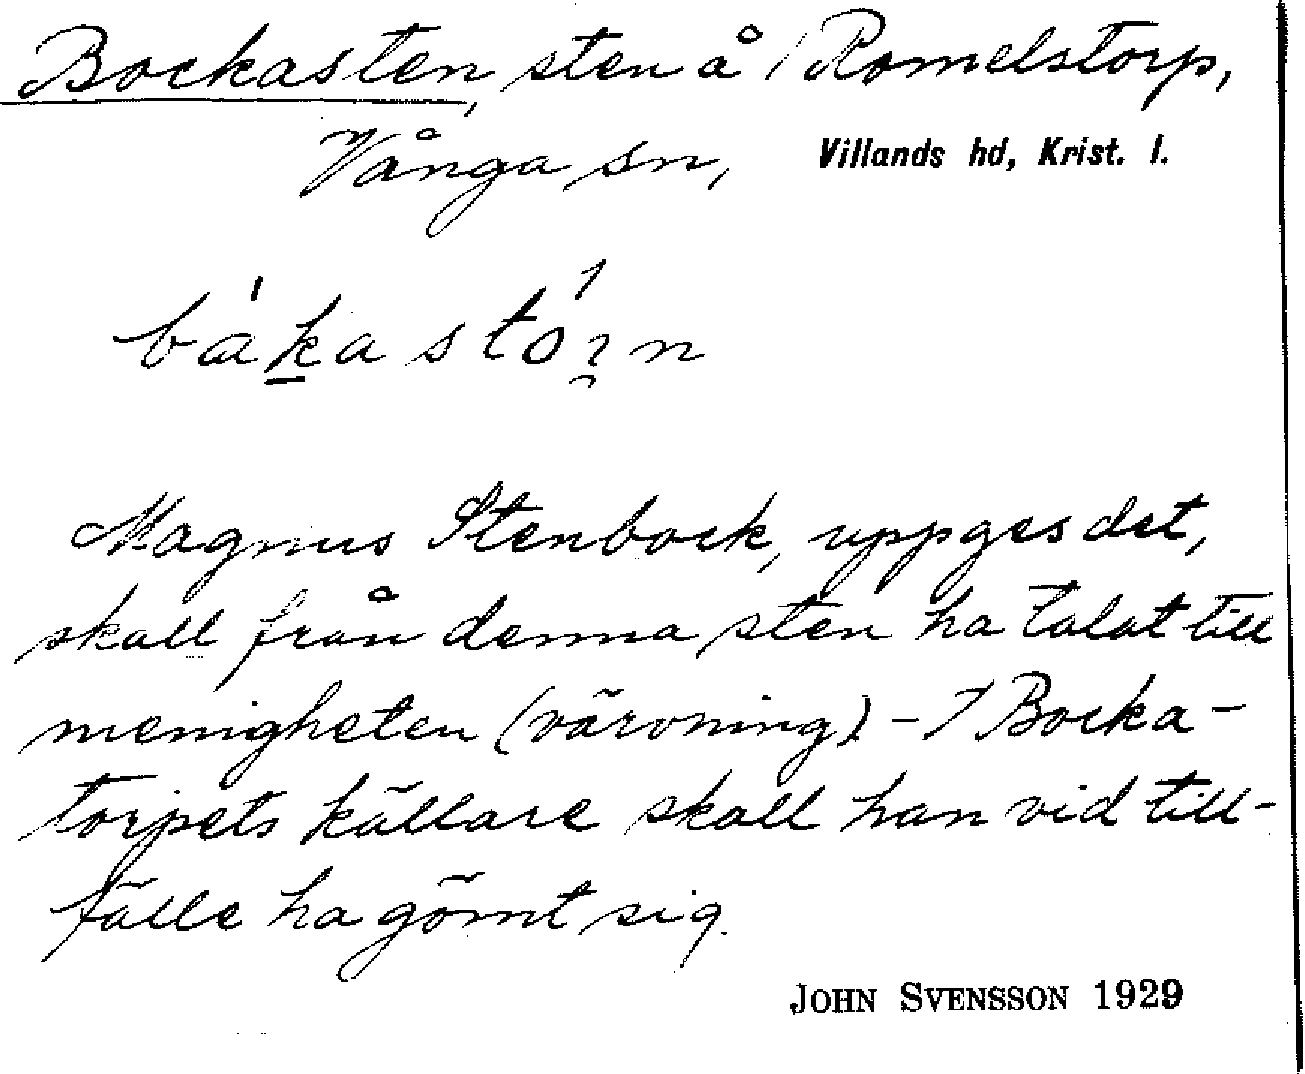 Bockasten, sten å Romelstorp,
Vånga sn, Villands hd, Krist. l.
Magnus Stenbock, uppges det,
skall från denna sten ha talat till
menigheten (värvning) – I Bocka-
torpets källare skall han vid till-
fälle ha gömt sig.
JOHN SVENSSON 1929